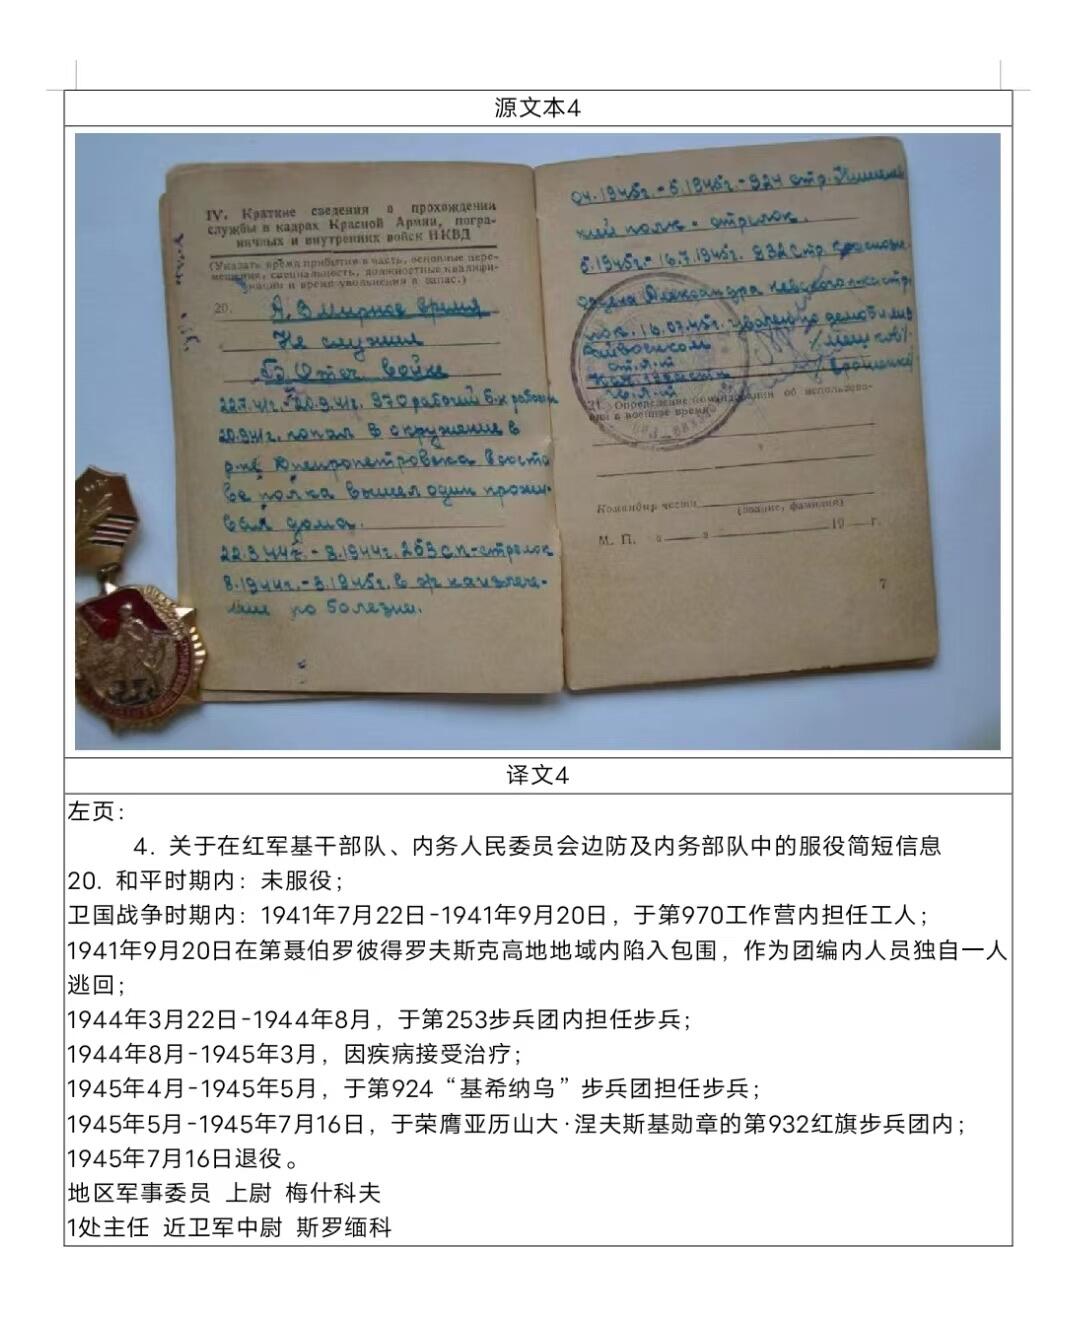 源文本4
IV. Краткие сведения о прохождении
службы в кадрах Красной Армии, погра-
ничных и внутренних войск НКВД
(Указать время прибытия в часть, основные пере-
мещения, специальность, должностные квалифи-
кации и время увольнения в запас.)
20. А. В мирное время
Не служил
Б. Отеч. войне
22.7.41г.-20.9.41г. 970 рабочий б-н рабочий
20.9.41г. попал в окружение в
р-не Днепропетровска в соста
ве полка вышел один прожи-
вал дома.
22.3.44г. - 8.1944г. 253 сп-стрелок
8.1944г.-3.1945г. в на излече-
нии по болезни.
04.1945г.-5.1945г.-924 стр. Кишинев
ский полк - стрелок.
5.1945г.- 16.7.1945г. 932 стр. краснозн.
ордена Александра Невского стр.
пол. 16.07.45г. демобилиз
Райвоенком
21. Определение командования об использова-
нии в военное время
Командир части
(звание, фамилия)
М. П. « » 19 г.
7
译文4
左页：
4. 关于在红军基干部队、内务人民委员会边防及内务部队中的服役简短信息
20. 和平时期内：未服役；
卫国战争时期内：1941年7月22日-1941年9月20日，于第970工作营内担任工人；
1941年9月20日在第聂伯罗彼得罗夫斯克高地地域内陷入包围，作为团编内人员独自一人
逃回；
1944年3月22日-1944年8月，于第253步兵团内担任步兵；
1944年8月-1945年3月，因疾病接受治疗；
1945年4月-1945年5月，于第924“基希纳乌”步兵团担任步兵；
1945年5月-1945年7月16日，于荣膺亚历山大·涅夫斯基勋章的第932红旗步兵团内；
1945年7月16日退役。
地区军事委员 上尉 梅什科夫
1处主任 近卫军中尉 斯罗缅科